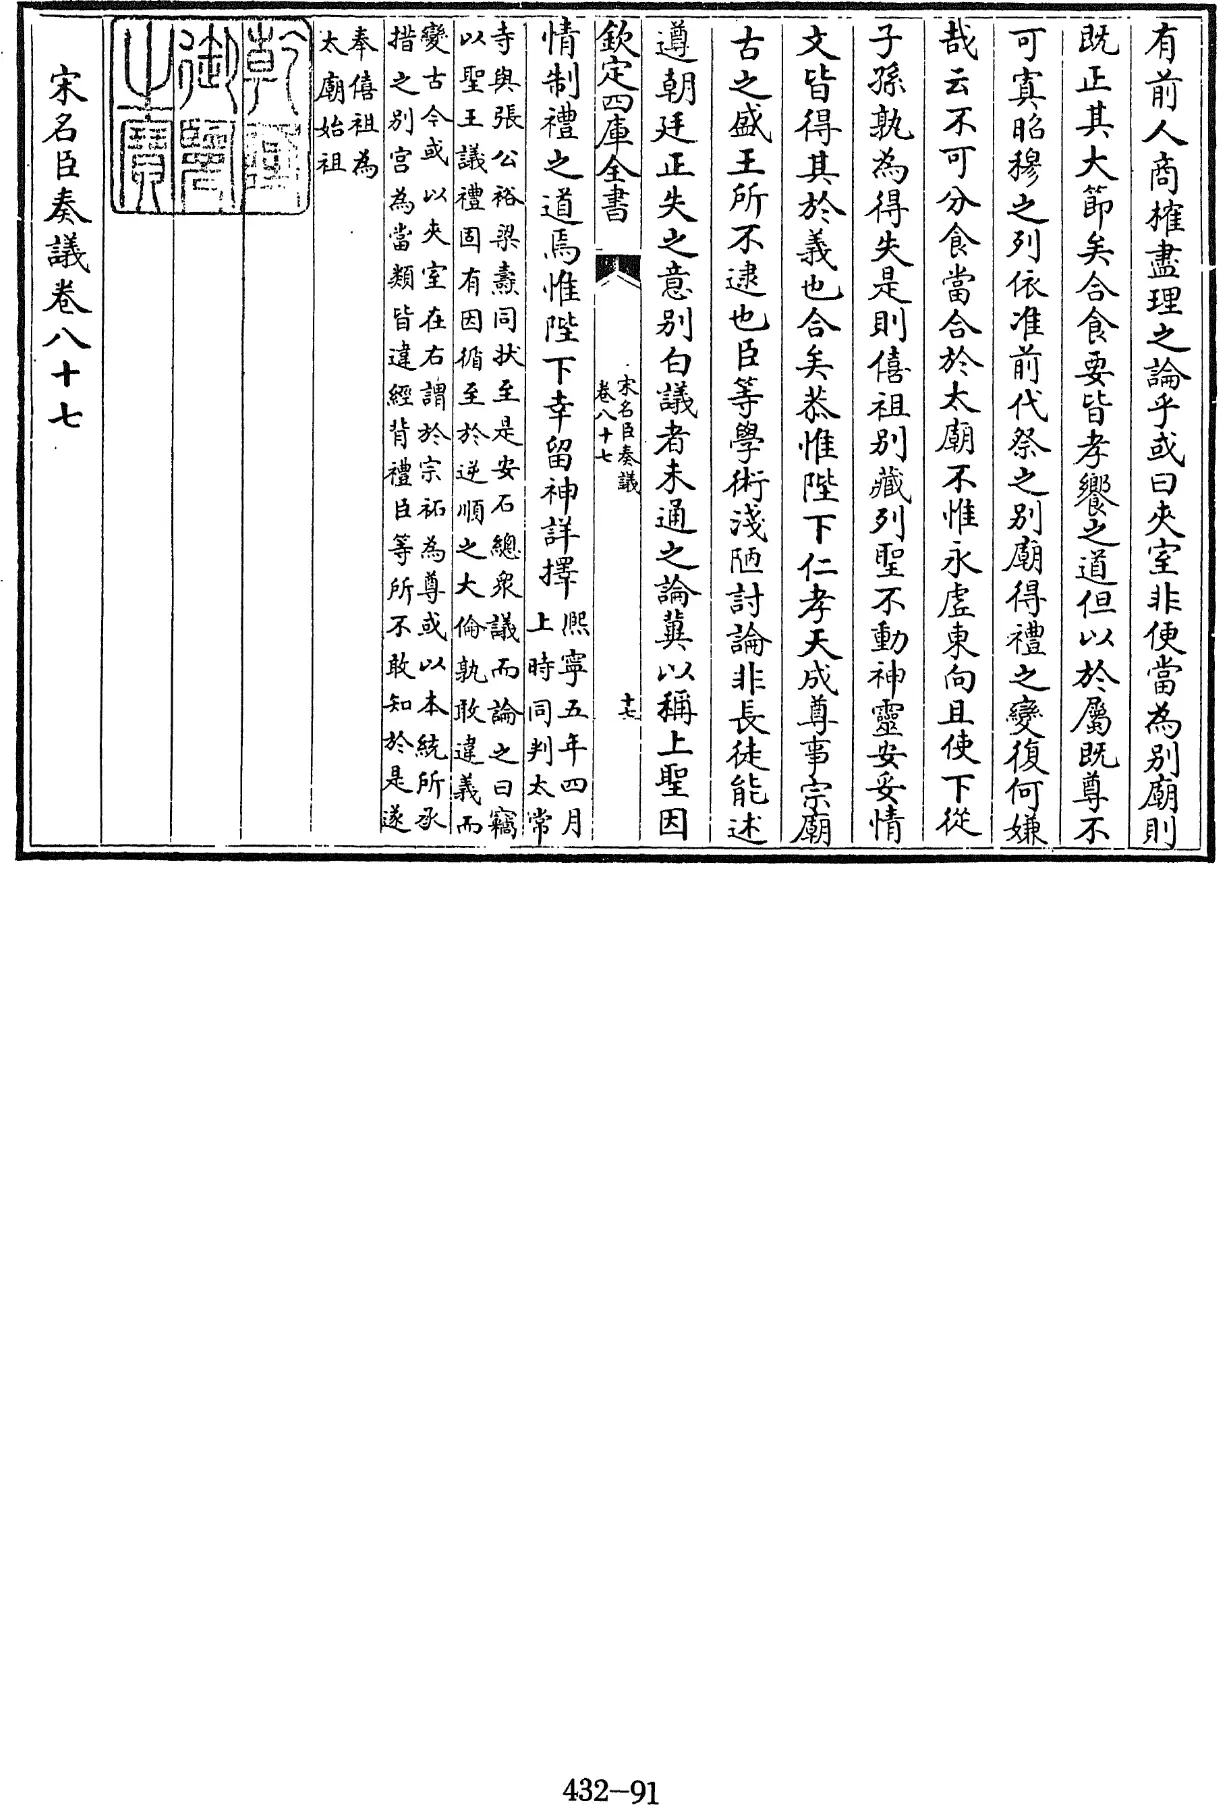 有前人商榷盡理之論乎或曰夾室非便當為別廟則
既正其大節矣合食要皆孝饗之道但以於屬既尊不
可寘昭穆之列依准前代祭之別廟得禮之變復何嫌
哉云不可分食當合於太廟不惟永虛東向且使下從
子孫孰為得失是則僖祖別藏列聖不動神靈安妥情
文皆得其於義也合矣恭惟陛下仁孝天成尊事宗廟
古之盛王所不逮也臣等學術淺陋討論非長徒能述
遵朝廷正失之意別白議者未通之論冀以稱上聖因
欽定四庫全書
宋名臣奏議
卷八十七
十七
情制禮之道焉惟陛下幸留神詳擇
熙寧五年四月
上時同判太常
寺與張公裕梁燾同狀至是安石總衆議而論之曰竊
以聖王議禮固有因循至於逆順之大倫孰敢違義而
變古今或以夾室在右謂於宗祏為尊或以本統所承
措之別宮為當類皆違經背禮臣等所不敢知於是遂
奉僖祖為
太廟始祖
乾隆
御覽
之寶
宋名臣奏議卷八十七
432-91